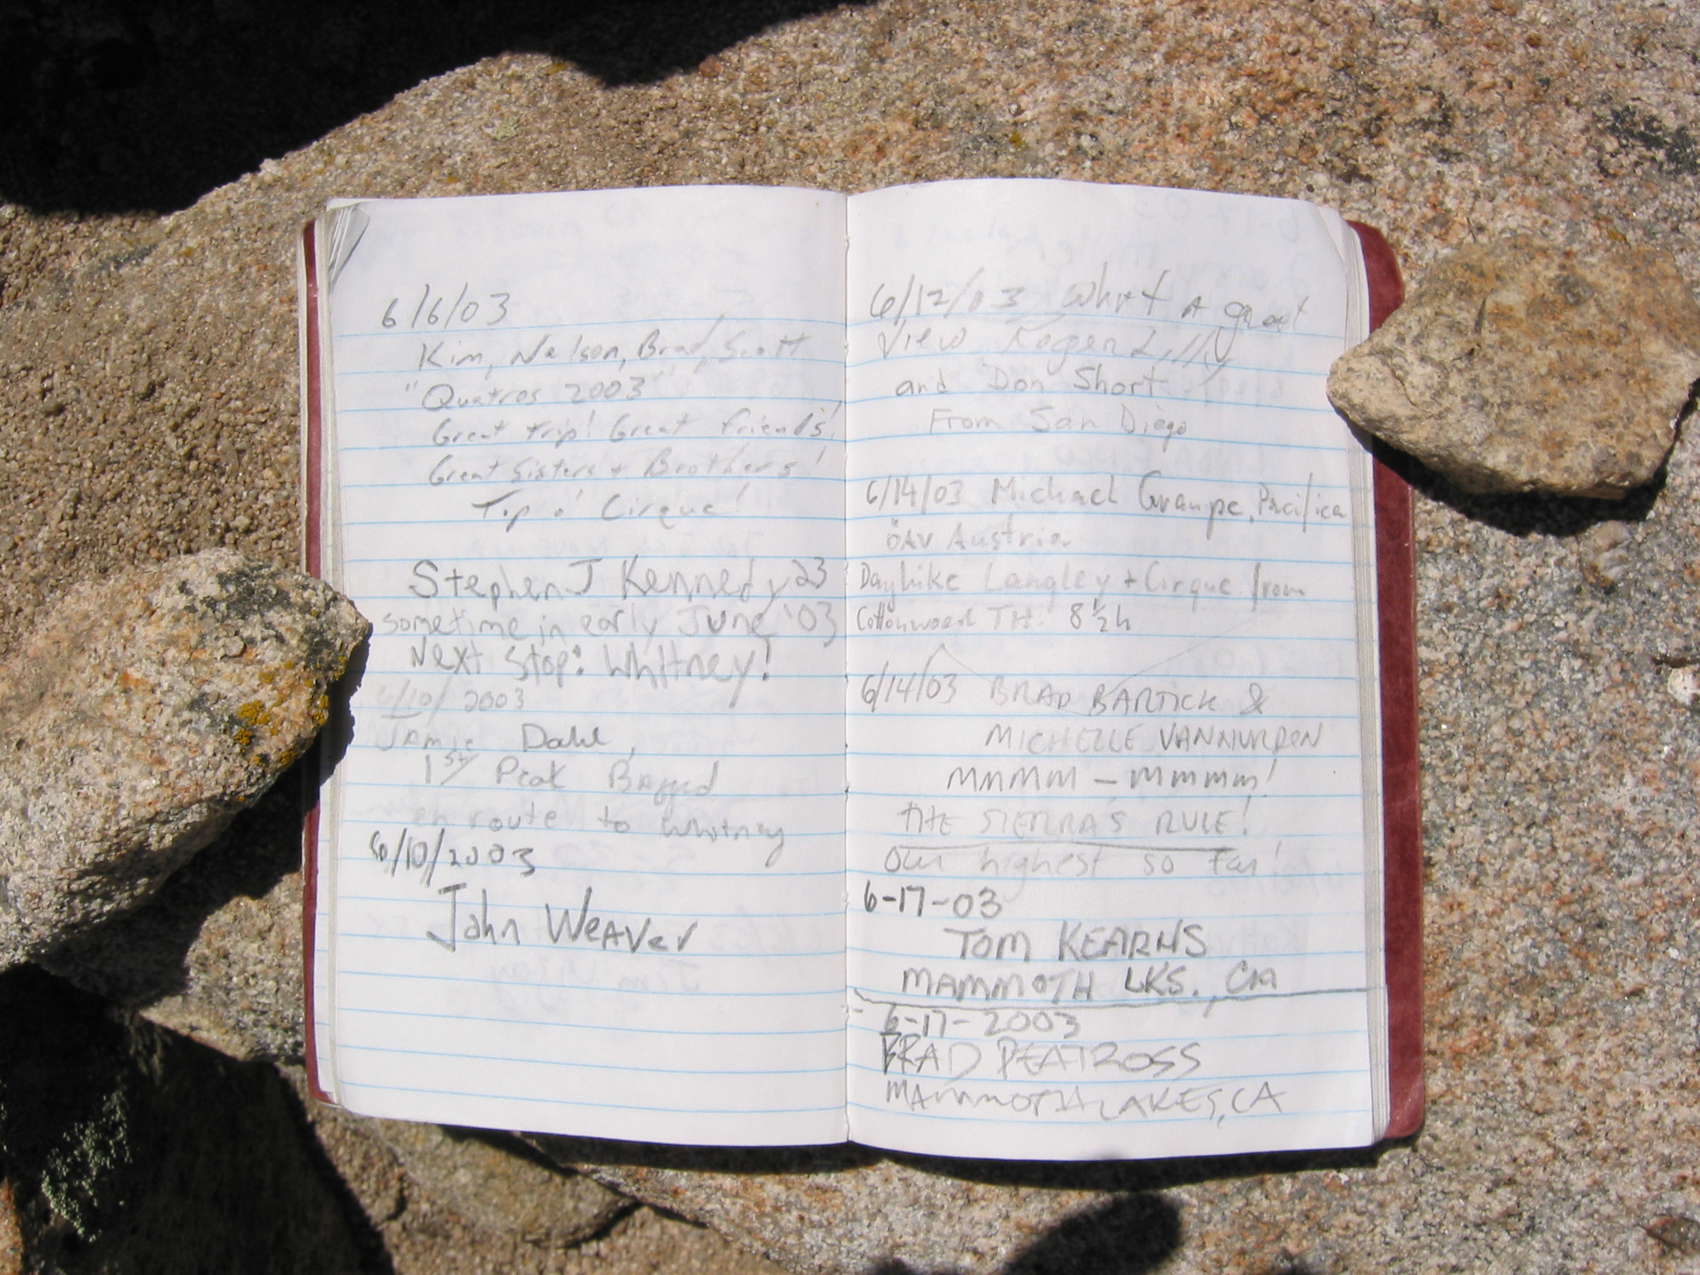 6/6/03
Kim, Nelson, Brad, Scott
"Quatros 2003"
Great trip! Great friends!
Great Sisters + Brothers!
Top o' Cirque!
Stephen J Kennedy 23
sometime in early June '03
Next stop: Whitney!
6/10/2003
Jamie Dahl,
1st Peak Bagged
en route to Whitney
6/10/2003
John Weaver
6/12/03 What A great
view Roger Lilly
and Don Short
From San Diego
6/14/03 Michael Grampe, Pacifica
ÖAV Austria
Dayhike Langley + Cirque from
Cottonwood TH. 8½h
6/14/03 BRAD BARTICK &
MICHELLE
MMMM – MMMM!
THE SIERRA'S RULE!
Our highest so far!
6-17-03
TOM KEARNS
MAMMOTH LKS., CA
6-17-2003
BRAD PEATROSS
MAMMOTH LAKES, CA